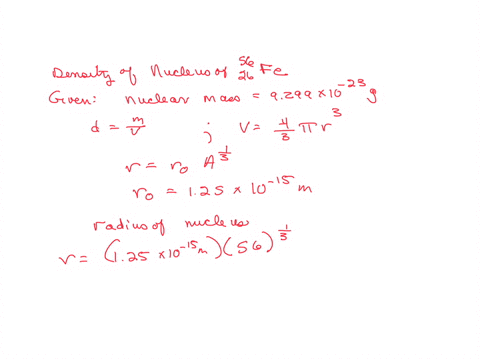 Density of Nucleus of ⁵⁶₂₆Fe
Given: nuclear mass = 9.299 × 10⁻²³ g
d = m/V ; V = 4/3 π r³
r = r₀ A^(1/3)
r₀ = 1.25 × 10⁻¹⁵ m
radius of nucleus
r = (1.25 × 10⁻¹⁵ m)(56)^(1/3)